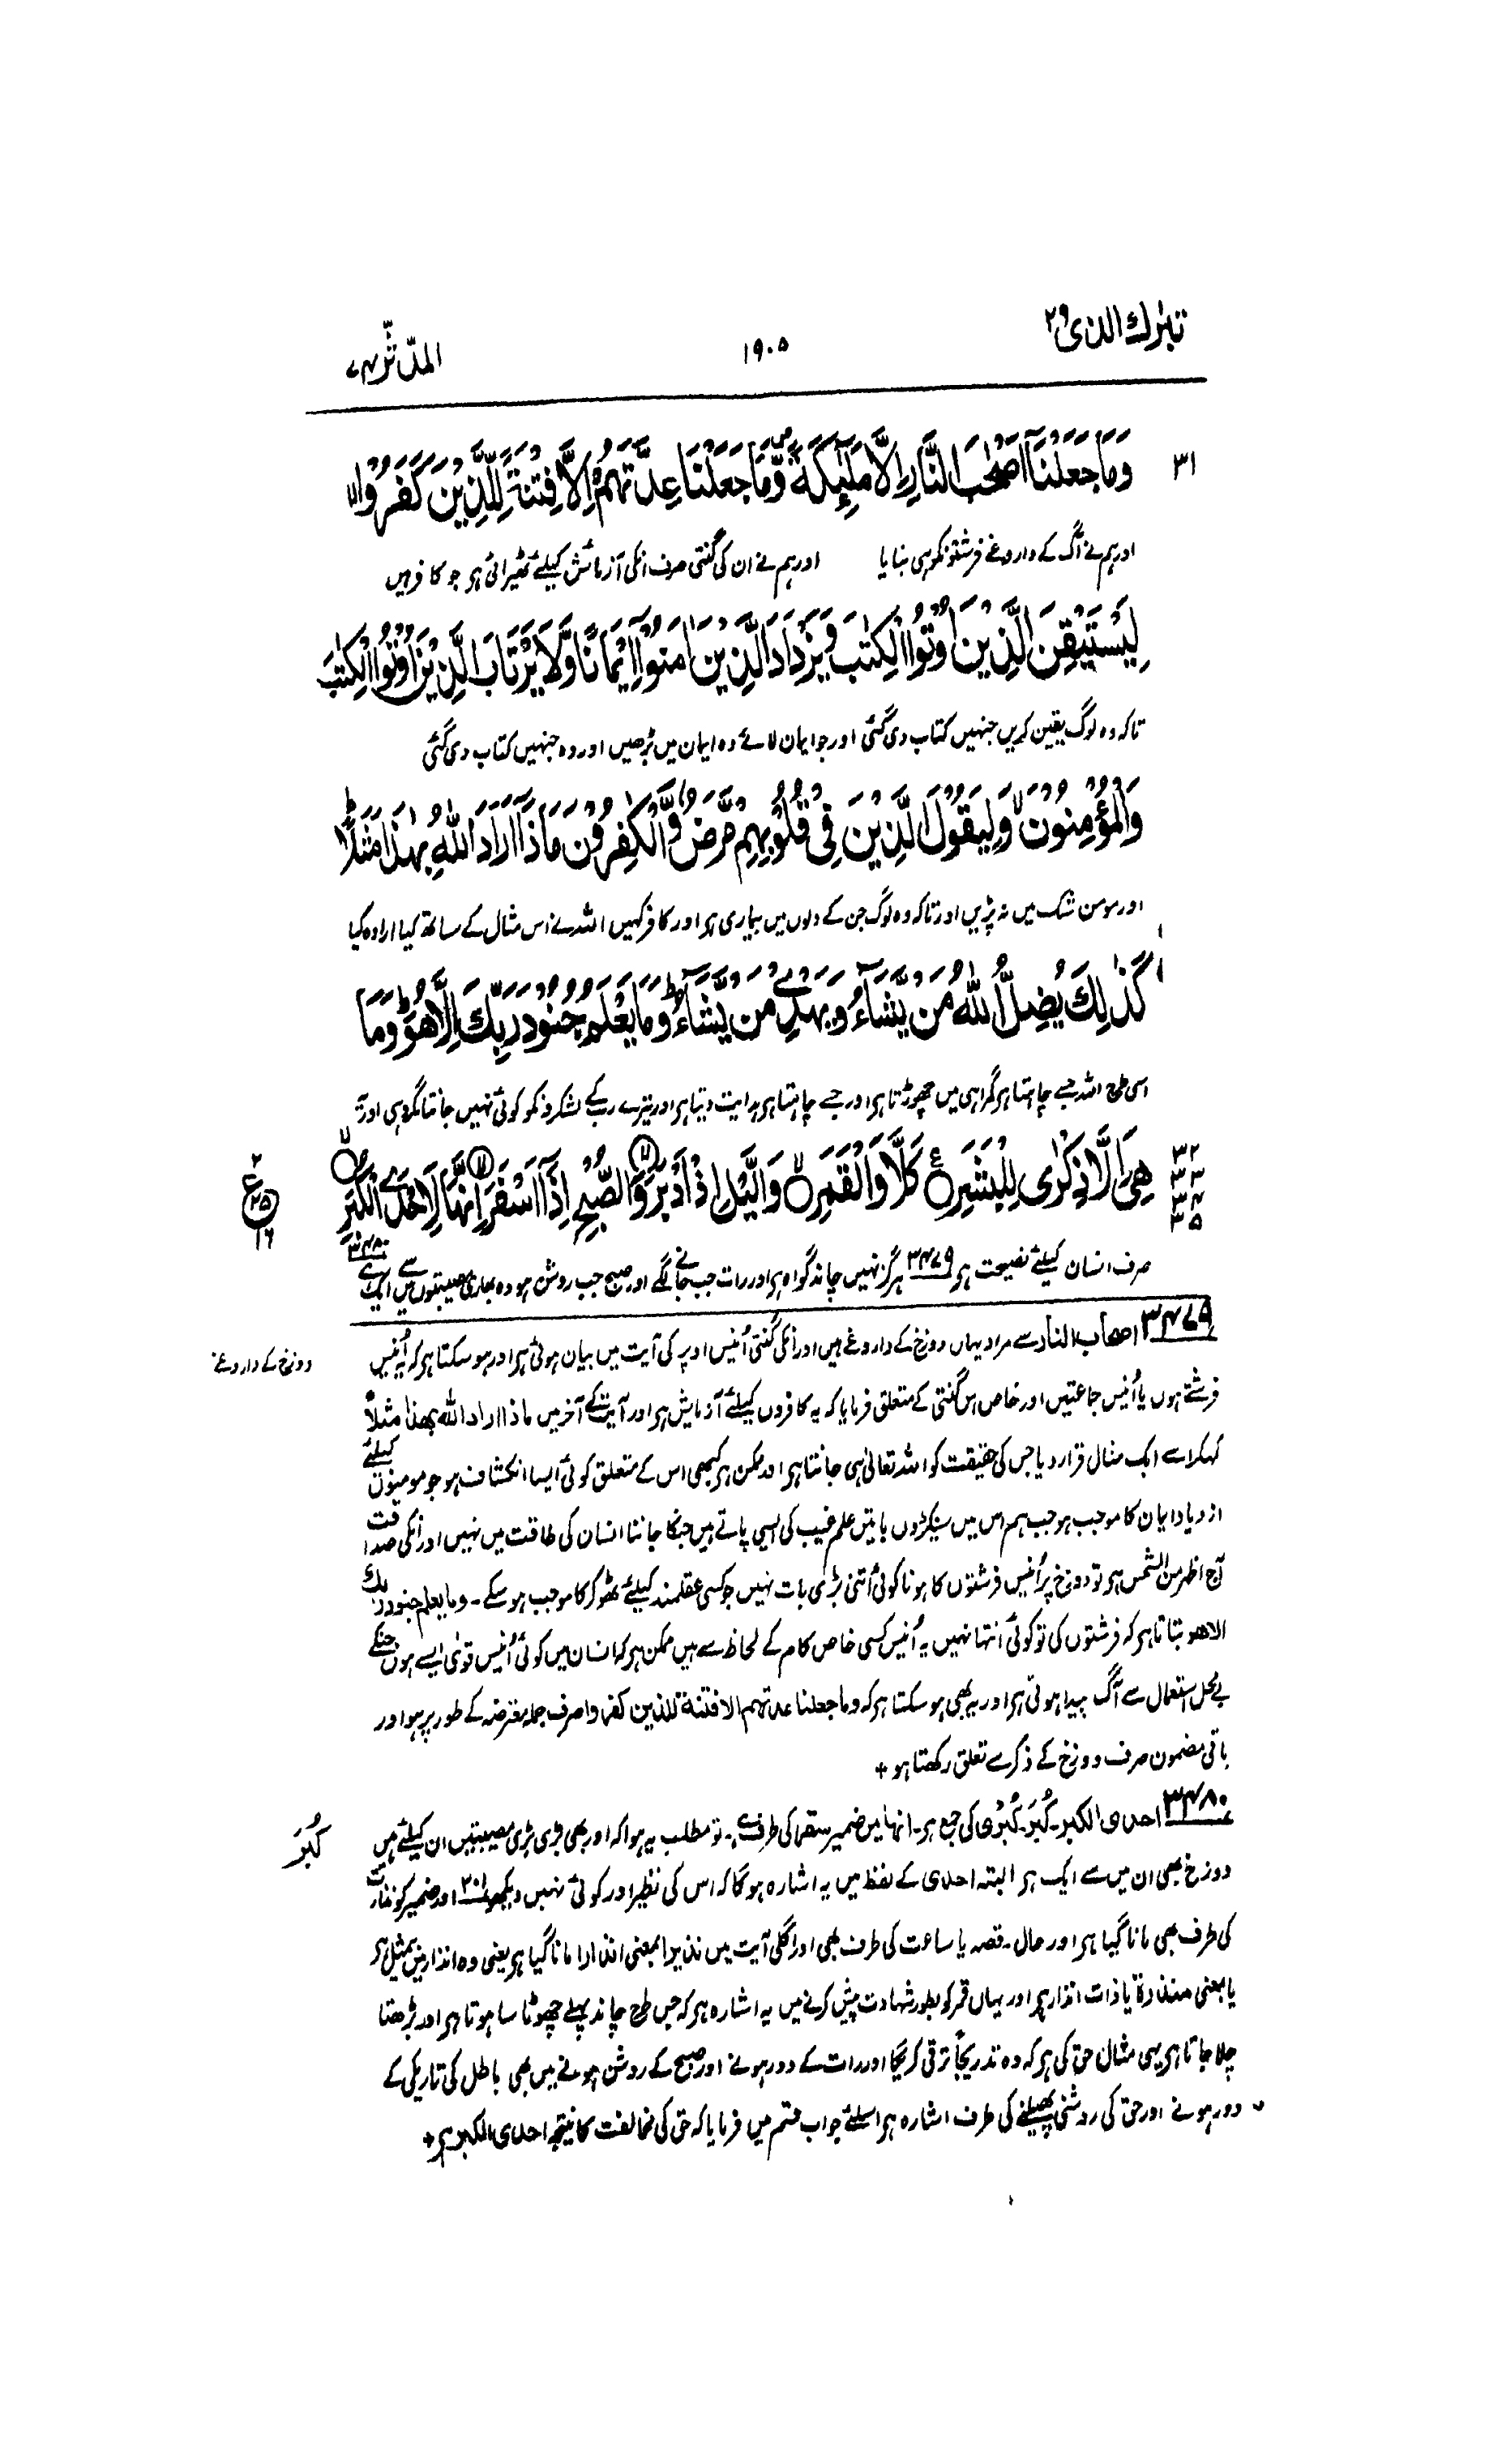 تبٰرك الذی ۲۹
۱۹۰۵
المدّثّر ۷۴
۳۱
وَمَا جَعَلْنَا اَصْحٰبَ النَّارِ اِلَّا مَلٰٓئِكَةً ۪ وَّمَا جَعَلْنَا عِدَّتَهُمْ اِلَّا فِتْنَةً لِّلَّذِيْنَ كَفَرُوْا ۙ
اور ہم نے آگ کے داروغے فرشتونکو ہی بنایا اور ہم نے ان کی گنتی صرف انکی آزمائش کیلئے ٹھیرائی ہو جو کافر ہیں
لِيَسْتَيْقِنَ الَّذِيْنَ اُوْتُوا الْكِتٰبَ وَيَزْدَادَ الَّذِيْنَ اٰمَنُوْٓا اِيْمَانًا وَّلَا يَرْتَابَ الَّذِيْنَ اُوْتُوا الْكِتٰبَ
تاکہ وہ لوگ یقین کریں جنہیں کتاب دی گئی اور جو ایمان لائے وہ ایمان میں بڑھیں اور وہ جنہیں کتاب دی گئی
وَالْمُؤْمِنُوْنَ ۙ وَلِيَقُوْلَ الَّذِيْنَ فِيْ قُلُوْبِهِمْ مَّرَضٌ وَّالْكٰفِرُوْنَ مَاذَآ اَرَادَ اللّٰهُ بِهٰذَا مَثَلًا ؕ
اور مومن شک میں نہ پڑیں اور تاکہ وہ لوگ جن کے دلوں میں بیماری ہو اور کافر کہیں اللہ نے اس مثال کے ساتھ کیا ارادہ کیا
كَذٰلِكَ يُضِلُّ اللّٰهُ مَنْ يَّشَآءُ وَيَهْدِيْ مَنْ يَّشَآءُ ؕ وَمَا يَعْلَمُ جُنُوْدَ رَبِّكَ اِلَّا هُوَ ؕ وَمَا
اسی طرح اللہ جسے چاہتا ہو گمراہی میں چھوڑتا ہو اور جسے چاہتا ہو ہدایت دیتا ہو اور تیرے رب کے لشکروں کو کوئی نہیں جانتا مگر وہی اور یہ
۳۲ ۳۳ ۳۴ ۳۵
هِيَ اِلَّا ذِكْرٰى لِلْبَشَرِ ۠ كَلَّا وَالْقَمَرِ ۙ وَالَّيْلِ اِذْ اَدْبَرَ ۙ وَالصُّبْحِ اِذَآ اَسْفَرَ ۙ اِنَّهَا لَاِحْدَى الْكُبَرِ ۙ
صرف انسان کیلئے نصیحت ہو ۳۴۷۹ ہرگز نہیں چاند گواہ ہو اور رات جب جانے لگے اور صبح جب روشن ہو وہ بھاری مصیبتوں میں سے ایک ہے ۳۴۸۰
۳۴۷۹ اصحاب النار سے مراد یہاں دوزخ کے داروغے ہیں اور انکی گنتی اُنیس اوپر کی آیت میں بیان ہوئی ہو اور ہو سکتا ہو کہ یہ اُنیس
دوزخ کے داروغے
فرشتے ہوں یا اُنیس جماعتیں اور خاص اس گنتی کے متعلق فرمایا کہ یہ کافروں کیلئے آزمایش ہو اور آیت کے آخر میں ماذا اراد اللہ بھذا مثلاً
کہکر اسے ایک مثال قرار دیا جس کی حقیقت کو اللہ تعالیٰ ہی جانتا ہو اور ممکن ہو کبھی اس کے متعلق کوئی ایسا انکشاف ہو جو مومنوں کیلئے
ازدیاد ایمان کا موجب ہو جب ہم اس میں سینکڑوں باتیں علم غیب کی ایسی پاتے ہیں جنکا جاننا انسان کی طاقت میں نہیں اور انکی صداقت
آج اظہر من الشمس ہو تو دوزخ پر اُنیس فرشتوں کا ہونا کوئی اتنی بڑی بات نہیں جو کسی عقلمند کیلئے ٹھوکر کا موجب ہو سکے۔ وما یعلم جنود ربك
الا ھو بتاتا ہو کہ فرشتوں کی تو کوئی انتہا نہیں یہ اُنیس کسی خاص کام کے لحاظ سے ہیں ممکن ہو کہ انسان میں کوئی اُنیس قویٰ ایسے ہوں جنکے
بے محل استعمال سے آگ پیدا ہوتی ہو اور یہ بھی ہو سکتا ہو کہ وما جعلنا عدتهم الا فتنة للذین کفروا صرف جملہ معترضہ کے طور پر ہو اور
باقی مضمون صرف دوزخ کے ذکر سے تعلق رکھتا ہو +
۳۴۸۰ احدی الکبر۔ کُبَر۔ کُبْرٰی کی جمع ہو۔ انھا میں ضمیر سقر کی طرف ہے۔ تو مطلب یہ ہوا کہ اور بھی بڑی بڑی مصیبتیں ان کیلئے ہیں
کُبَر
دوزخ بھی ان میں سے ایک ہو البتہ احدی کے لفظ میں یہ اشارہ ہوگا کہ اس کی نظیر اور کوئی نہیں دیکھو اور ضمیر کو
کی طرف بھی مانا گیا ہو اور حال۔ قصہ یا ساعت کی طرف بھی اور اگلی آیت میں نذیرا بمعنی انذارا مانا گیا ہو یعنی وہ انذار میں بیمثل ہو
یا بمعنی منذرة یا ذات انذار ہو اور یہاں قمر کو بطور شہادت پیش کرنے میں یہ اشارہ ہو کہ جس طرح چاند پہلے چھوٹا سا ہوتا ہو اور بڑھتا
چلا جاتا ہو یہی مثال حق کی ہو کہ وہ تدریجاً ترقی کریگا اور رات کے دور ہونے اور صبح کے روشن ہونے میں بھی باطل کی تاریکی کے
دور ہونے اور حق کی روشنی پھیلنے کی طرف اشارہ ہو اسلئے جواب قسم میں فرمایا کہ حق کی مخالفت کا نتیجہ احدی الکبر ہو +